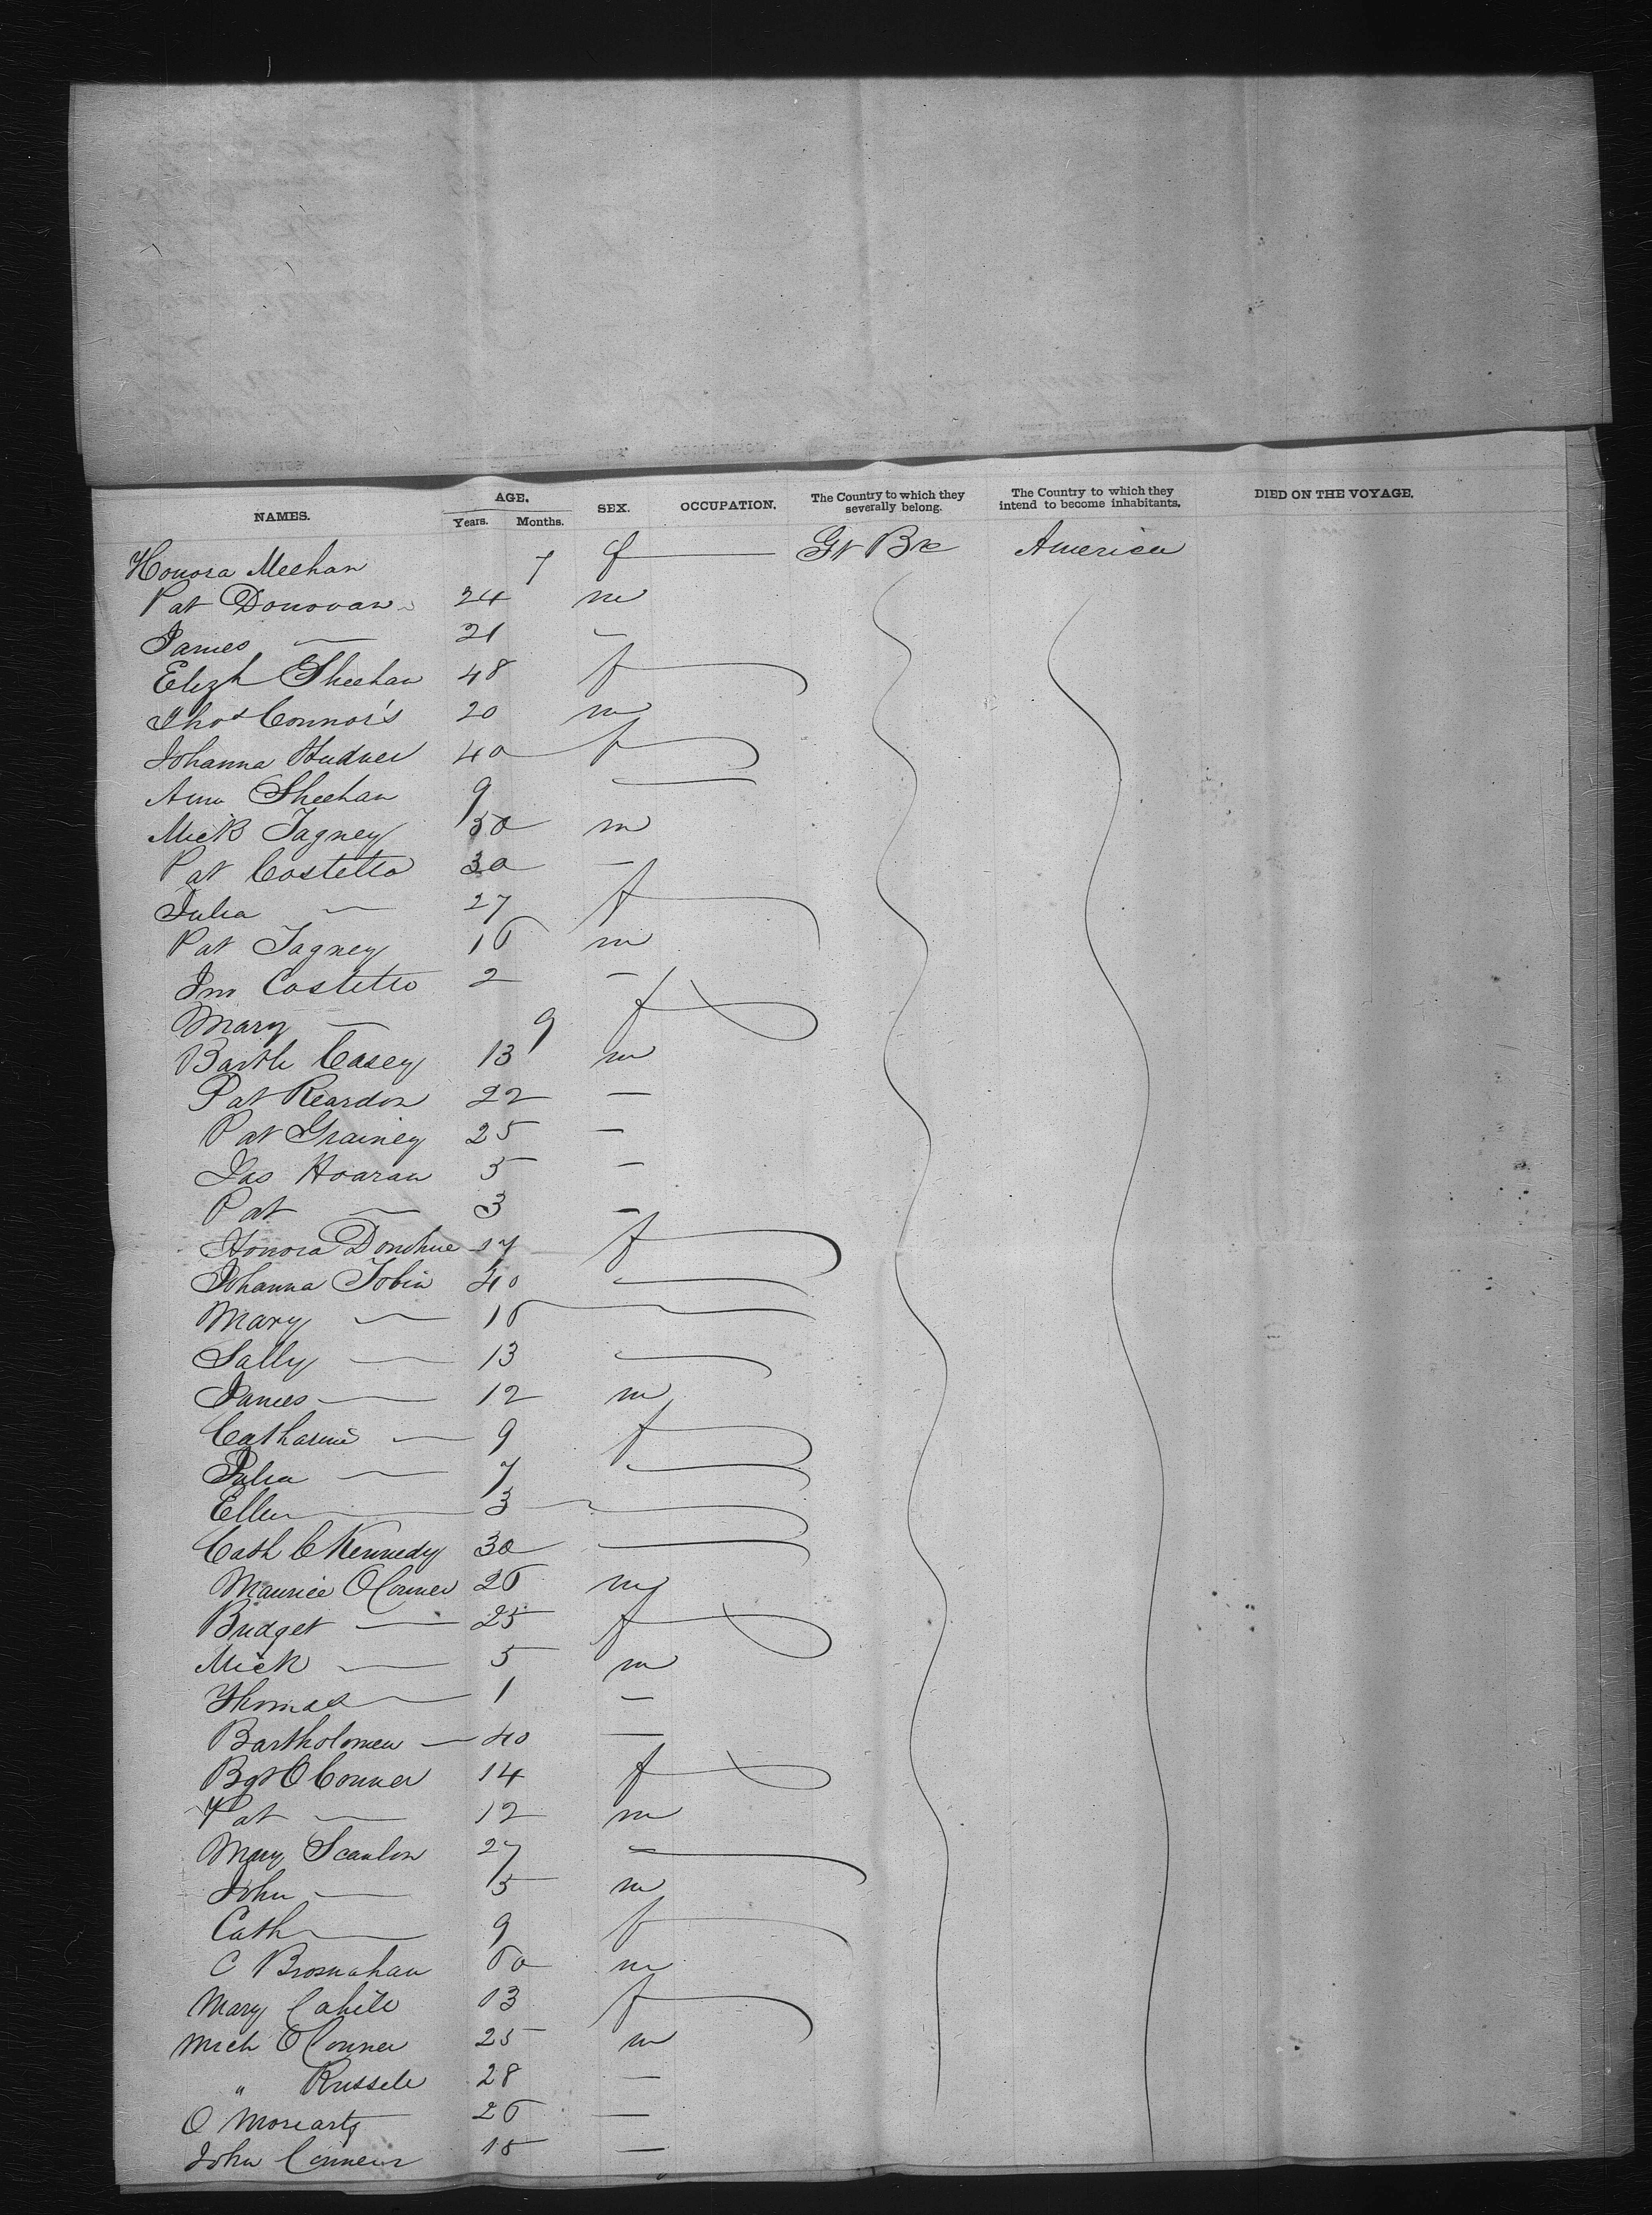 NAMES. AGE. SEX. OCCUPATION. The Country to which they severally belong. The Country to which they intend to become inhabitants. DIED ON THE VOYAGE.
Years. Months.
Honora Meehan 7 f — Gt Br America
Pat Donovan 24 m
James — 21 —
Elizh Sheehan 48 f
Thos Connor's 20 m
Johanna Hudner 40 f
Ann Sheehan 9 —
Mick Tagney 50 m
Pat Costello 30 —
Julia — 27 f
Pat Tagney 16 m
Jno Costello 2 —
Mary — 9 f
Barth Casey 13 m
Pat Reardon 22 —
Pat Grainey 25 —
Jas Hoaran 5 —
Pat — 3 —
Honora Donohue 17 f
Johanna Tobin 40 —
Mary — 16 —
Sally — 13 —
James — 12 m
Catharine — 9 f
Julia — 7 —
Ellen — 3 —
Cath C Kennedy 30 —
Maurice OConner 26 m
Bridget — 25 f
Mick — 5 m
Thomas — 1 —
Bartholomew — 40 —
Bgt OConner 14 f
Pat — 12 m
Mary Scanlon 27 —
John — 5 m
Cath — 9 f
C Brosnahan 60 m
Mary Cahill 13 f
Mich OConner 25 m
" Russell 28 —
O Moriarty 26 —
John Conneur 15 —